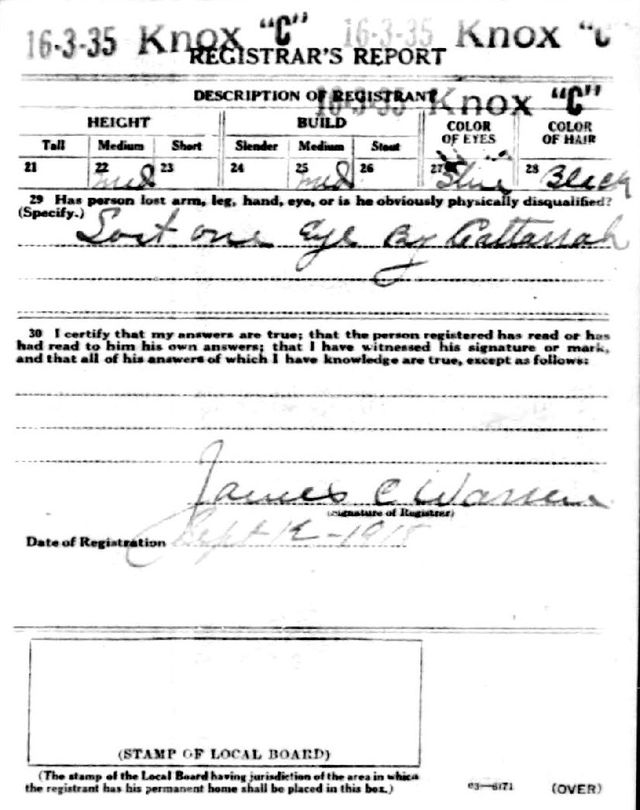 16-3-35 Knox "C" 16-3-35 Knox "C"
REGISTRAR'S REPORT
16-3-35 Knox "C"
DESCRIPTION OF REGISTRANT
HEIGHT BUILD COLOR OF EYES COLOR OF HAIR
Tall Medium Short Slender Medium Stout
21 22 med 23 24 25 med 26 27 Blue 28 Black
29 Has person lost arm, leg, hand, eye, or is he obviously physically disqualified?
(Specify.) Lost one Eye By Cattarrah
30 I certify that my answers are true; that the person registered has read or has
had read to him his own answers; that I have witnessed his signature or mark,
and that all of his answers of which I have knowledge are true, except as follows:
James C Warren
(Signature of Registrar)
Date of Registration Sept 12-1918
(STAMP OF LOCAL BOARD)
(The stamp of the Local Board having jurisdiction of the area in which
the registrant has his permanent home shall be placed in this box.)
03—6171 (OVER)